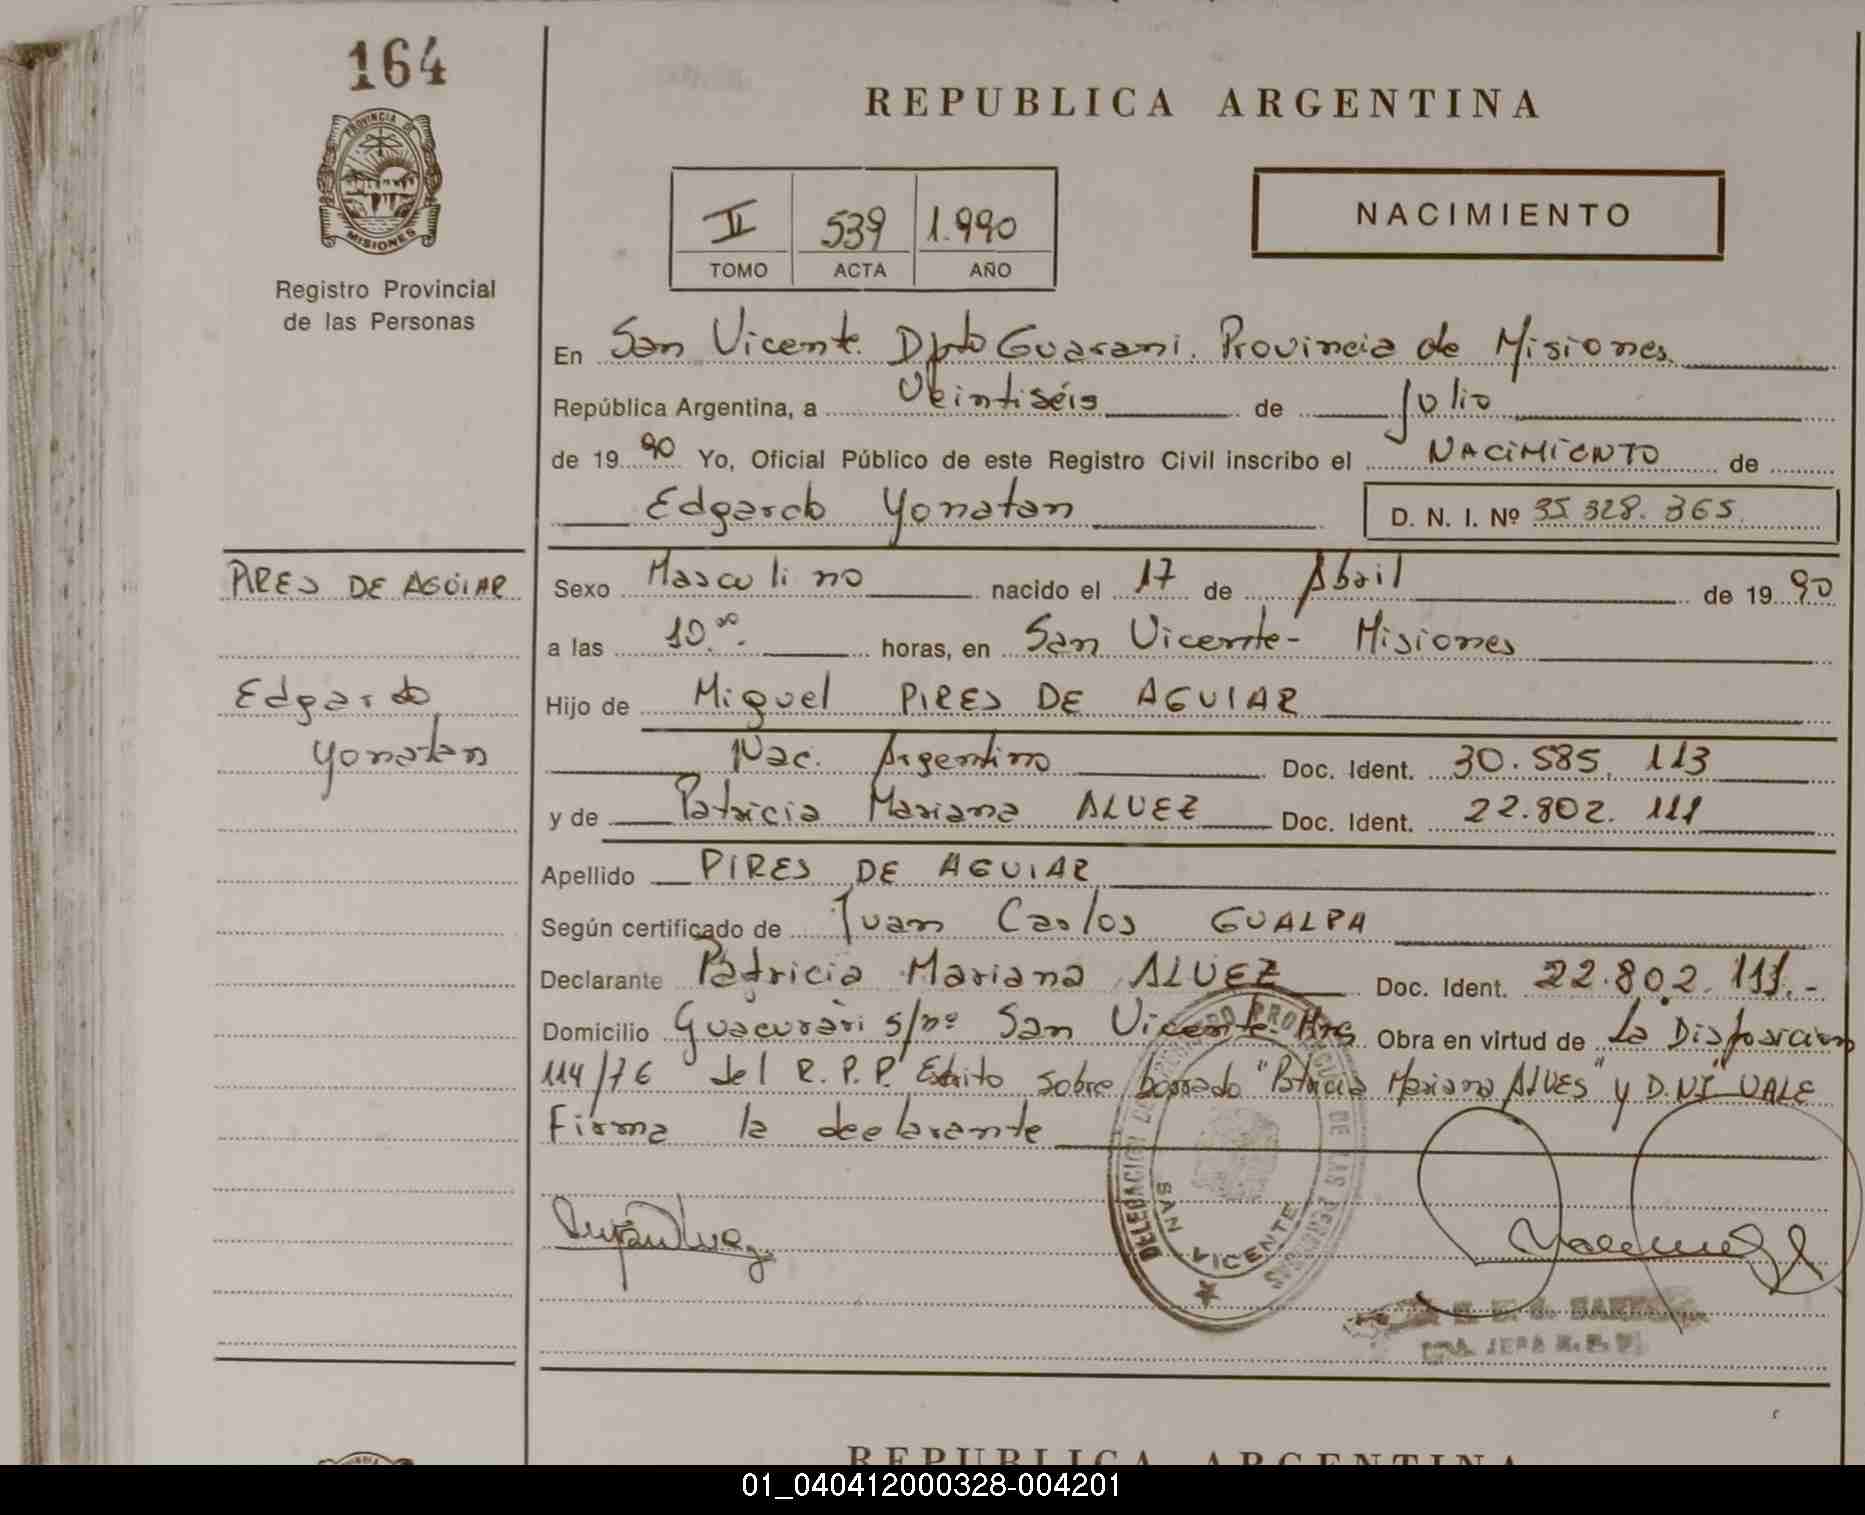 164
PROVINCIA DE
MISIONES
Registro Provincial
de las Personas
REPUBLICA ARGENTINA
II 539 1.990
TOMO ACTA AÑO
NACIMIENTO
En San Vicente. Dpto Guarani. Provincia de Misiones
República Argentina, a Veintiséis de Julio
de 19 90 Yo, Oficial Público de este Registro Civil inscribo el NACIMIENTO de
Edgardo Yonatan D. N. I. Nº 35.328.365
PIRES DE AGUIAR
Edgardo
Yonatan
Sexo Masculino nacido el 17 de Abril de 19 90
a las 10.00 horas, en San Vicente - Misiones
Hijo de Miguel PIRES DE AGUIAR
Nac. Argentino Doc. Ident. 30.585.113
y de Patricia Mariana ALVEZ Doc. Ident. 22.802.111
Apellido PIRES DE AGUIAR
Según certificado de Juan Carlos GUALPA
Declarante Patricia Mariana ALVEZ Doc. Ident. 22.802.111.-
Domicilio Guacurari s/nº San Vicente Mnes Obra en virtud de La Disposicion
114/76 del R.P.P. Escrito sobre borrado "Patricia Mariana ALVES" y D.NI" VALE
Firma la declarante
DELEGACION DEL REGISTRO PROVINCIAL DE LAS PERSONAS
SAN VICENTE
REPUBLICA ARGENTINA
01_040412000328-004201